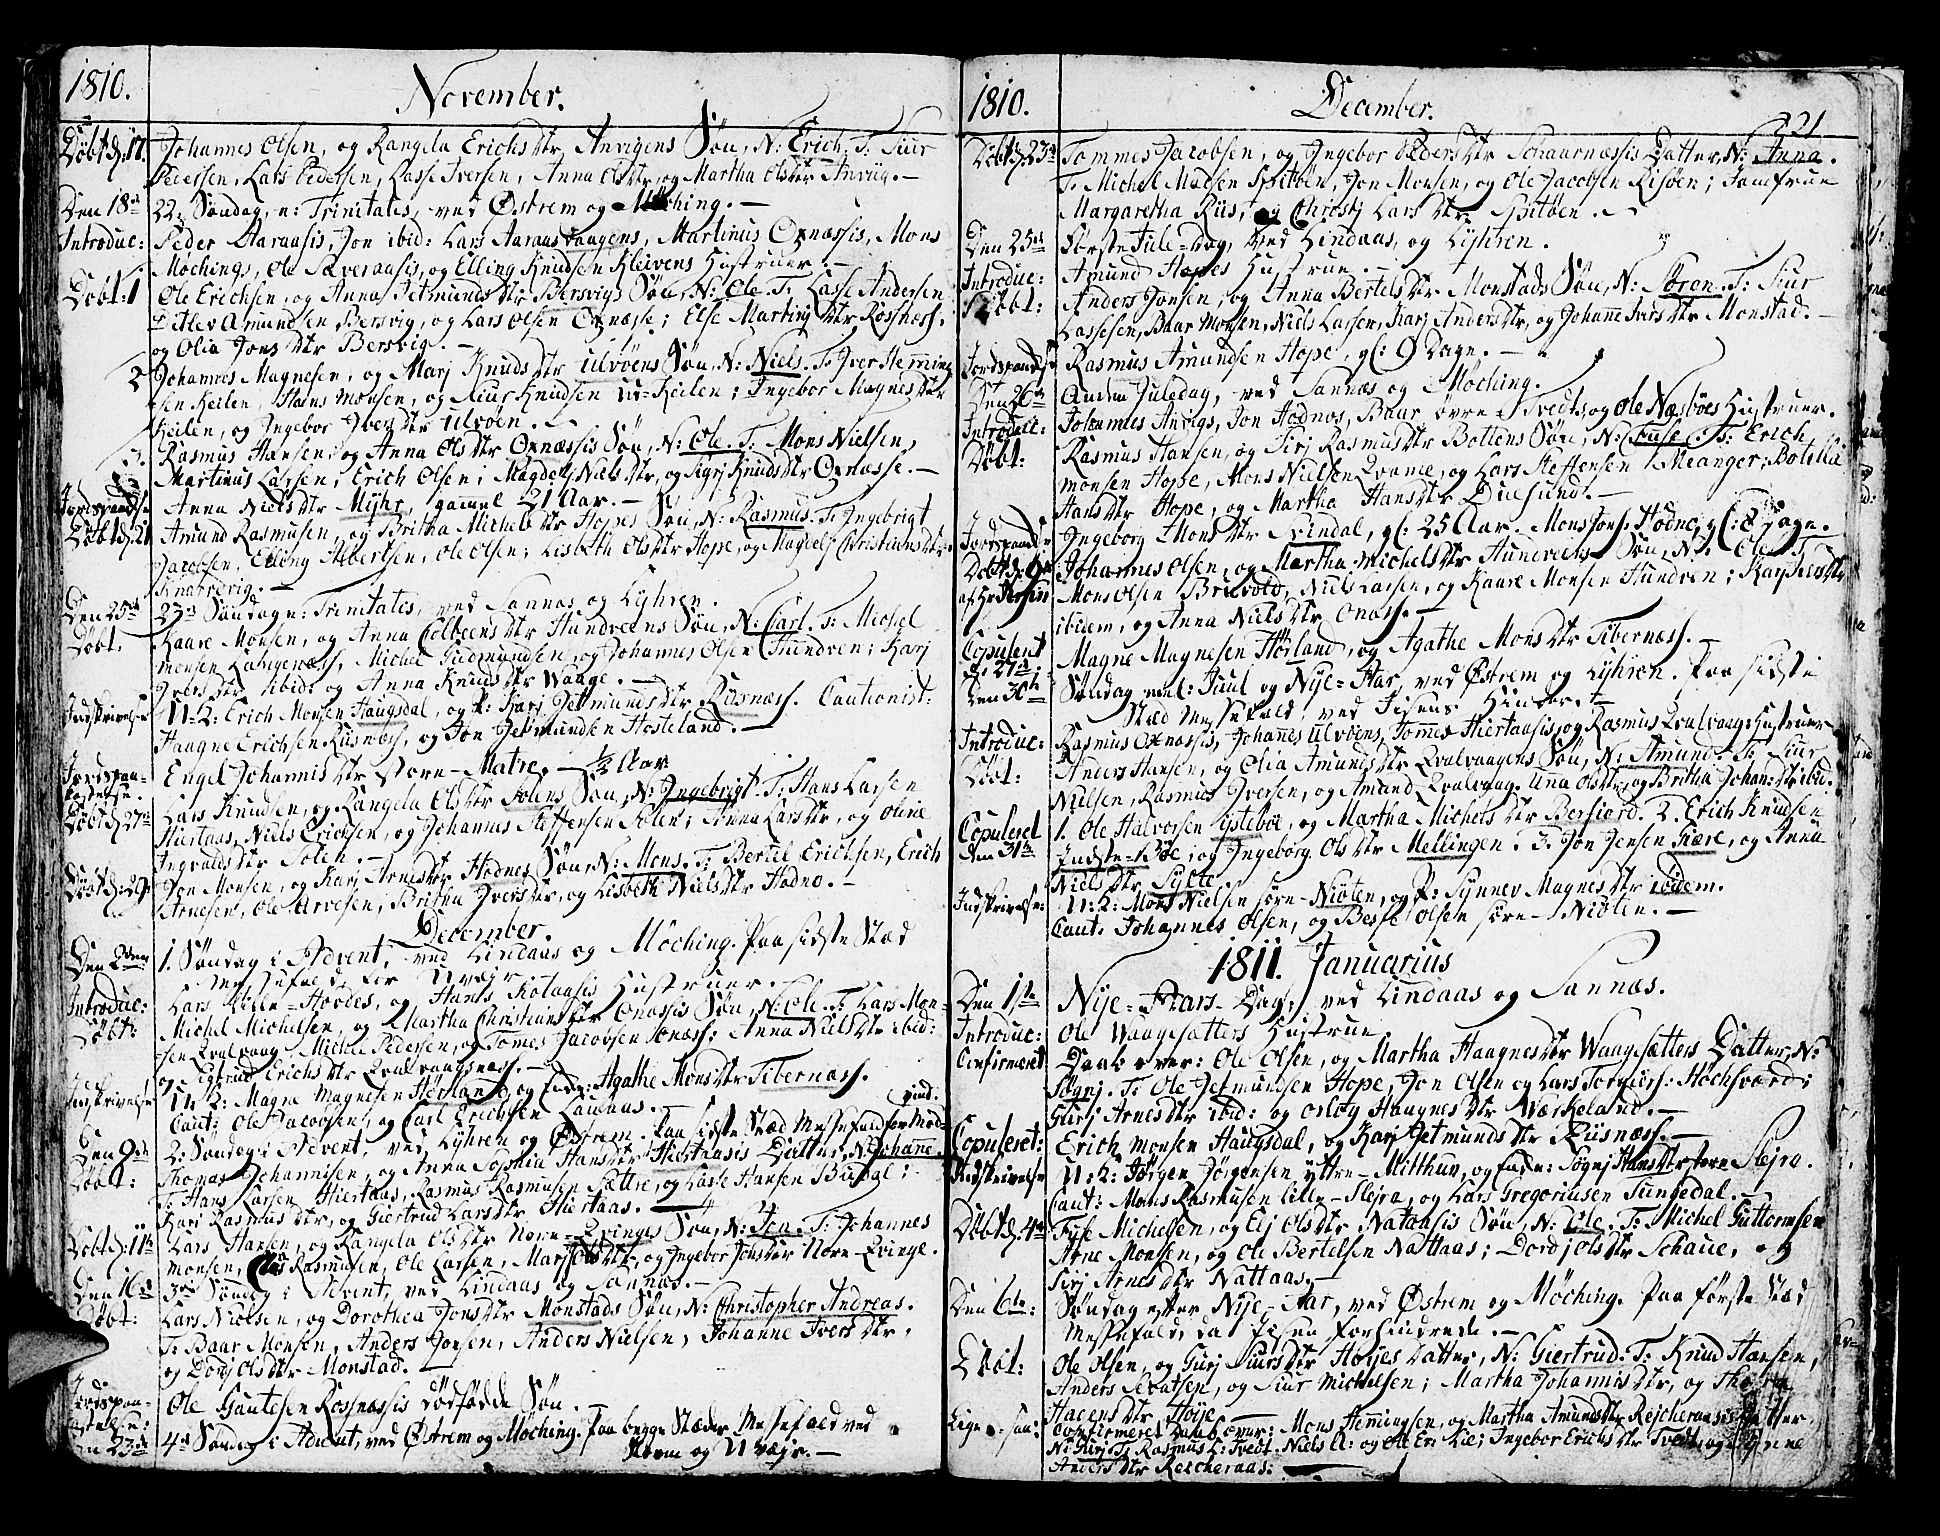 1810.
November.
Döbt d: 17. Johannes Olsen, og Rangela Erichs dtr Anvigens Søn, N: Erich. T: Siur
Pederssen, Lars Pedersen, Lasse Iversen, Anna Ols dtr, og Martha Ols dtr Anviig.
Den 18de 22. Søndag, n: Trinitatis, ved Østrem og Möching.
Introduc: Peder Aaraasis, Jon ibid: Lars Aaraasvaagens, Martinus Oxnæssis, Mons
Möchings, Ole Sæveraasis, og Elling Knudsen Kleivens Hustruer.
Döbt: 1 Ole Erichsen, og Anna Jetmunds dtr Bersvigs Søn, N: Ole. T: Lasse Andersen
Ditlev Amundsen Bersvig, og Lars Olsen Oxnæsse; Else Martinj dtr Rossnæss,
og Olia Jons dtr Bersvig.
2 Johannes Magnesen, og Marj Knuds dtr Ulvöens Søn, N: Niels. T: Iver Heming
sen Keilen, Hans Monsen, og Siur Knudsen Keilen; Ingebor Magnes dtr
Keilen, og Ingebor Ivers dtr Ulvöen.
3. Rasmus Hansen, og Anna Ols dtr Oxnæssis Søn, N: Ole. T: Mons Nielsen,
Martinus Larsen, Erich Olsen; Magdelj Niels dtr, og Sigrj Knuds dtr Oxnæsse.
Jordspaakaste Anna Niels dtr Myhr, gammel 21 Aar.
Döbt d: 21 Amund Rasmusen, og Britha Michels dtr Hopes Søn, N: Rasmus. T: Ingebrigt
Jacobsen, Elling Albertsen, Ole Olsen; Lisbeth Ols dtr Hope, og Magdelj Christians dtr
Knarrevig.
Den 25de 23de Søndag n: Trinitatis, ved Sannæs og Lyhren.
Döbt. Kaare Monsen, og Anna Colbeens dtr Hundveens Søn, N: Carl. T: Michel
Monsen Langenæss, Michel Gudmundsen, og Johannes Olsen Hundven; Karj
Ivers dtr ibid: og Anna Knuds dtr Waage.
Indskrivelse N: 2: Erich Monsen Haugsdal, og P: Karj Jetmunds dtr Risnæss. Cautionist:
Haagne Erichsen Riisnæss, og Jon Jetmundsen Hosteland.
Jordspaa-
kastelse. Engel Johannis dtr Store-Matre. 1/2 Aar
Döbt d: 27de Lars Knudsen, og Rangela Ols dtr Solens Søn, N: Ingebrigt. T: Hans Larsen
Hiertaas, Niels Erichsen, og Johannes Steffensen Solen; Anna Lars dtr, og Oline
Ingvalds dtr Solen.
Döbt d: 29. Jon Monsen, og Karj Arnes dtr Hodnes Søn, N: Mons. T: Bertel Erichsen, Erich
Arnesen, Ole Arvesen, Britha Ivers dtr, og Lisbeth Niels dtr Hodno.
December.
Den 2den 1. Søndag i Advent, ved Lindaas og Möching. Paa sidste Stæd
Messefald for Uvejr.
Introduc: Lars Lille-Hovdes, og Hans Kolaasis Hustruer.
Döbt: Michel Michelsen, og Martha Christians dtr Onæssis Søn, N: Ole. T: Lars Mon-
sen Qvalvaag, Michel Pedersen, og Tomes Jacobsen Onæss; Anna Niels dtr ibid:
og Sigrud Erichs dtr Qvalvaagnæss.
Indskrivelse N: 2: Magne Magnesen Hörland, og Enke: Agathe Mons dtr Tibernæss.
Caut: Ole Jacobsen, og Carl Erichsen Lindaas. vind:
Den 9de 2. Søndag i Advent, ved Lyhren og Østrem. Paa sidste Stæd Messefald for Mod-
Döbt: Thomas Johannisen, og Anna Sophia Hans dtr Hiertaasis Datter, N: Johanne.
T: Hans Larsen Hiertaas, Rasmus Rasmusen Sættre, og Lasse Hansen Bildal;
Karj Rasmus dtr, og Giertrud Lars dtr Hiertaas.
Döbt d: 11te Lars Hansen, og Rangela Ols dtr Nore-Qvinges Søn, N: Jon. T: Johannes
Monsen, Rasmusen, Ole Larsen, Marj Ols dtr, og Ingebor Jons dtr Nore-Qvinge.
Den 16de 3die Søndag i Advent, ved Lindaas og Sannæs.
Döbt: Lars Nielsen, og Dorothea Jons dtr Monstads Søn, N: Christopher Andreas.
T: Baar Monsen, Anders Jonsen, Anders Nielsen, Johanne Ivers dtr,
og Dordj Ols dtr Monstad.
Jordspaa-
kastelse: Ole Gautesen Rossnæssis dödfødde Søn.
Den 23de 4de Søndag i Advent, ved Østrem og Möching. Paa begge Stæder Messefald ved
Storm og Uvejr.
1810.
December.
221
Döbt d: 23de Tommes Jacobsen, og Ingebor Peders dtr Schaurnæssis Datter, N: Anna.
T: Michel Madsen Spitöen, Jon Monsen, og Ole Jacobsen Risöen; Jomfrue
Margaretha Riis, og Christj Lars dtr Spitöen.
Den 25de Første Jule-Dag, ved Lindaas, og Lyhren.
Introduc: Amund Hopes Hustrue.
Döbt: Anders Jonsen, og Anna Bertels dtr Monstads Søn, N: Sören. T: Siur
Lassesen, Baar Monsen, Niels Larsen, Karj Anders dtr, og Johanne Ivers dtr Monstad.
Jordspaakastelse Rasmus Amundsen Hope, gl: 9 Dage.
Den 26de Anden Juledag, ved Sannæs og Möching.
Introduc: Johannes Anvigs, Jon Hodnos, Baar övre-Tvedts, og Ole Næsböes Hustruer.
Döbt: Rasmus Hansen, og Sirj Rasmus dtr Bottens Søn, N: T: Erich
Monsen Hope, Mons Nielsen Qvame, og Lars Steffensen Meanger; Botilla
Hans dtr Hope, og Martha Hans dtr Duesund.
Jordspaak: Ingeborg Mons dtr Svindal, gl: 25 Aar. Mons Jons: Hodno, gl: 8 Dage.
Döbt d: Johannes Olsen, og Martha Michels dtr Hundveens Søn, N: Ole. T:
af Hr Mons Olsen Brievold, Niels Larsen, og Kaare Monsen Hundven; Karj Niels dtr
ibidem, og Anna Niels dtr Onæss.
Copuleret
d: 27de: Magne Magnesen Hörland, og Agathe Mons dtr Tibernæss.
Den 30te Søndag mel: Juul og Nye-Aar, ved Østrem og Lyhren. Paa sidste
Stæd Messefald, ved Jisens Hinder.
Introduc: Rasmus Oxnæssis, Johanes Ulvöens, Tommes Hiertaasis, og Rasmus Qvalvaags Hustruer
Döbt: Anders Hansen, og Olia Amunds dtr Qvalvaagens Søn, N: Amund. T: Siur
Nielsen, Rasmus Iversen, og Amund Qvalvaag. Anna Ols dtr, og Britha Johan: dtr ibid.
Copuleret
den 31te 1. Ole Halvorsen Systeböe, og Martha Michels dtr Bersiord. 2. Erich Knudsen
Indste-Böe, og Ingeborg Ols dtr Mellingen. 3. Jon Jensen Kære, og Anna
Niels dtr Sylte.
Indskrivelse: N: 2: Mons Nielsen söre-Niöten, og P: Synnev Magnes dtr ibidem.
Caut: Johannes Olsen, og Besse Olsen söre-Niöten.
1811. Januarius
Den 1ste Nye-Aars-Dag, ved Lindaas og Sannæs.
Introduc: Ole Waagesætters Hustrue.
Confirmeret Daab over: Ole Olsen, og Martha Haagnes dtr Waagesætters Datter, N:
Søgnj. T: Ole Jetmundsen Hope, Jon Olsen og Lars Torgiers: Höchsværd;
Gurj Arnes dtr ibid: og Oslög Haagnes dtr Værkeland.
Copuleret: Erich Monsen Haugsdal, og Karj Jetmunds dtr Riisnæss.
Indskrivelse N: 2: Jörgen Jörgensen yttre-Mitthun, og Enke: Søgnj Hans dtr store Slejra.
Caut: Mons Rasmusen lille-Slejra, og Lars Gregoriusen Tungedal.
Döbt d: 4de Fyse Michelsen, og Eij Ols dtr Nataasis Søn, N: Ole. T: Michel Guttormsen
Arne Monsen, og Ole Bertelsen Nattaas; Dordj Ols dtr Schaue, og
Sirj Arnes dtr Nattaas.
Den 6te: Søndag efter Nye-Aar, ved Østrem og Möching. Paa første Stæd
Messefald, da Jisen forhindrede.
Döbt: Ole Olsen, og Gurj Siurs dtr Höijes Datter, N: Giertrud. T: Knud Hansen,
Anders Sevatsen, og Siur Michelsen; Martha Johannis dtr, og
Haaens dtr Höije.
Confirmeret Daab over: Mons Hemingsen, og Martha Amunds dtr Rejcheraasis Datter.
N: Gurj. T: Rasmus L: Tvedt. Niels A: og Ole Er: Lie; Ingebor Erichs dtr Tvedt, og Synne
Anders dtr Rejcheraas.